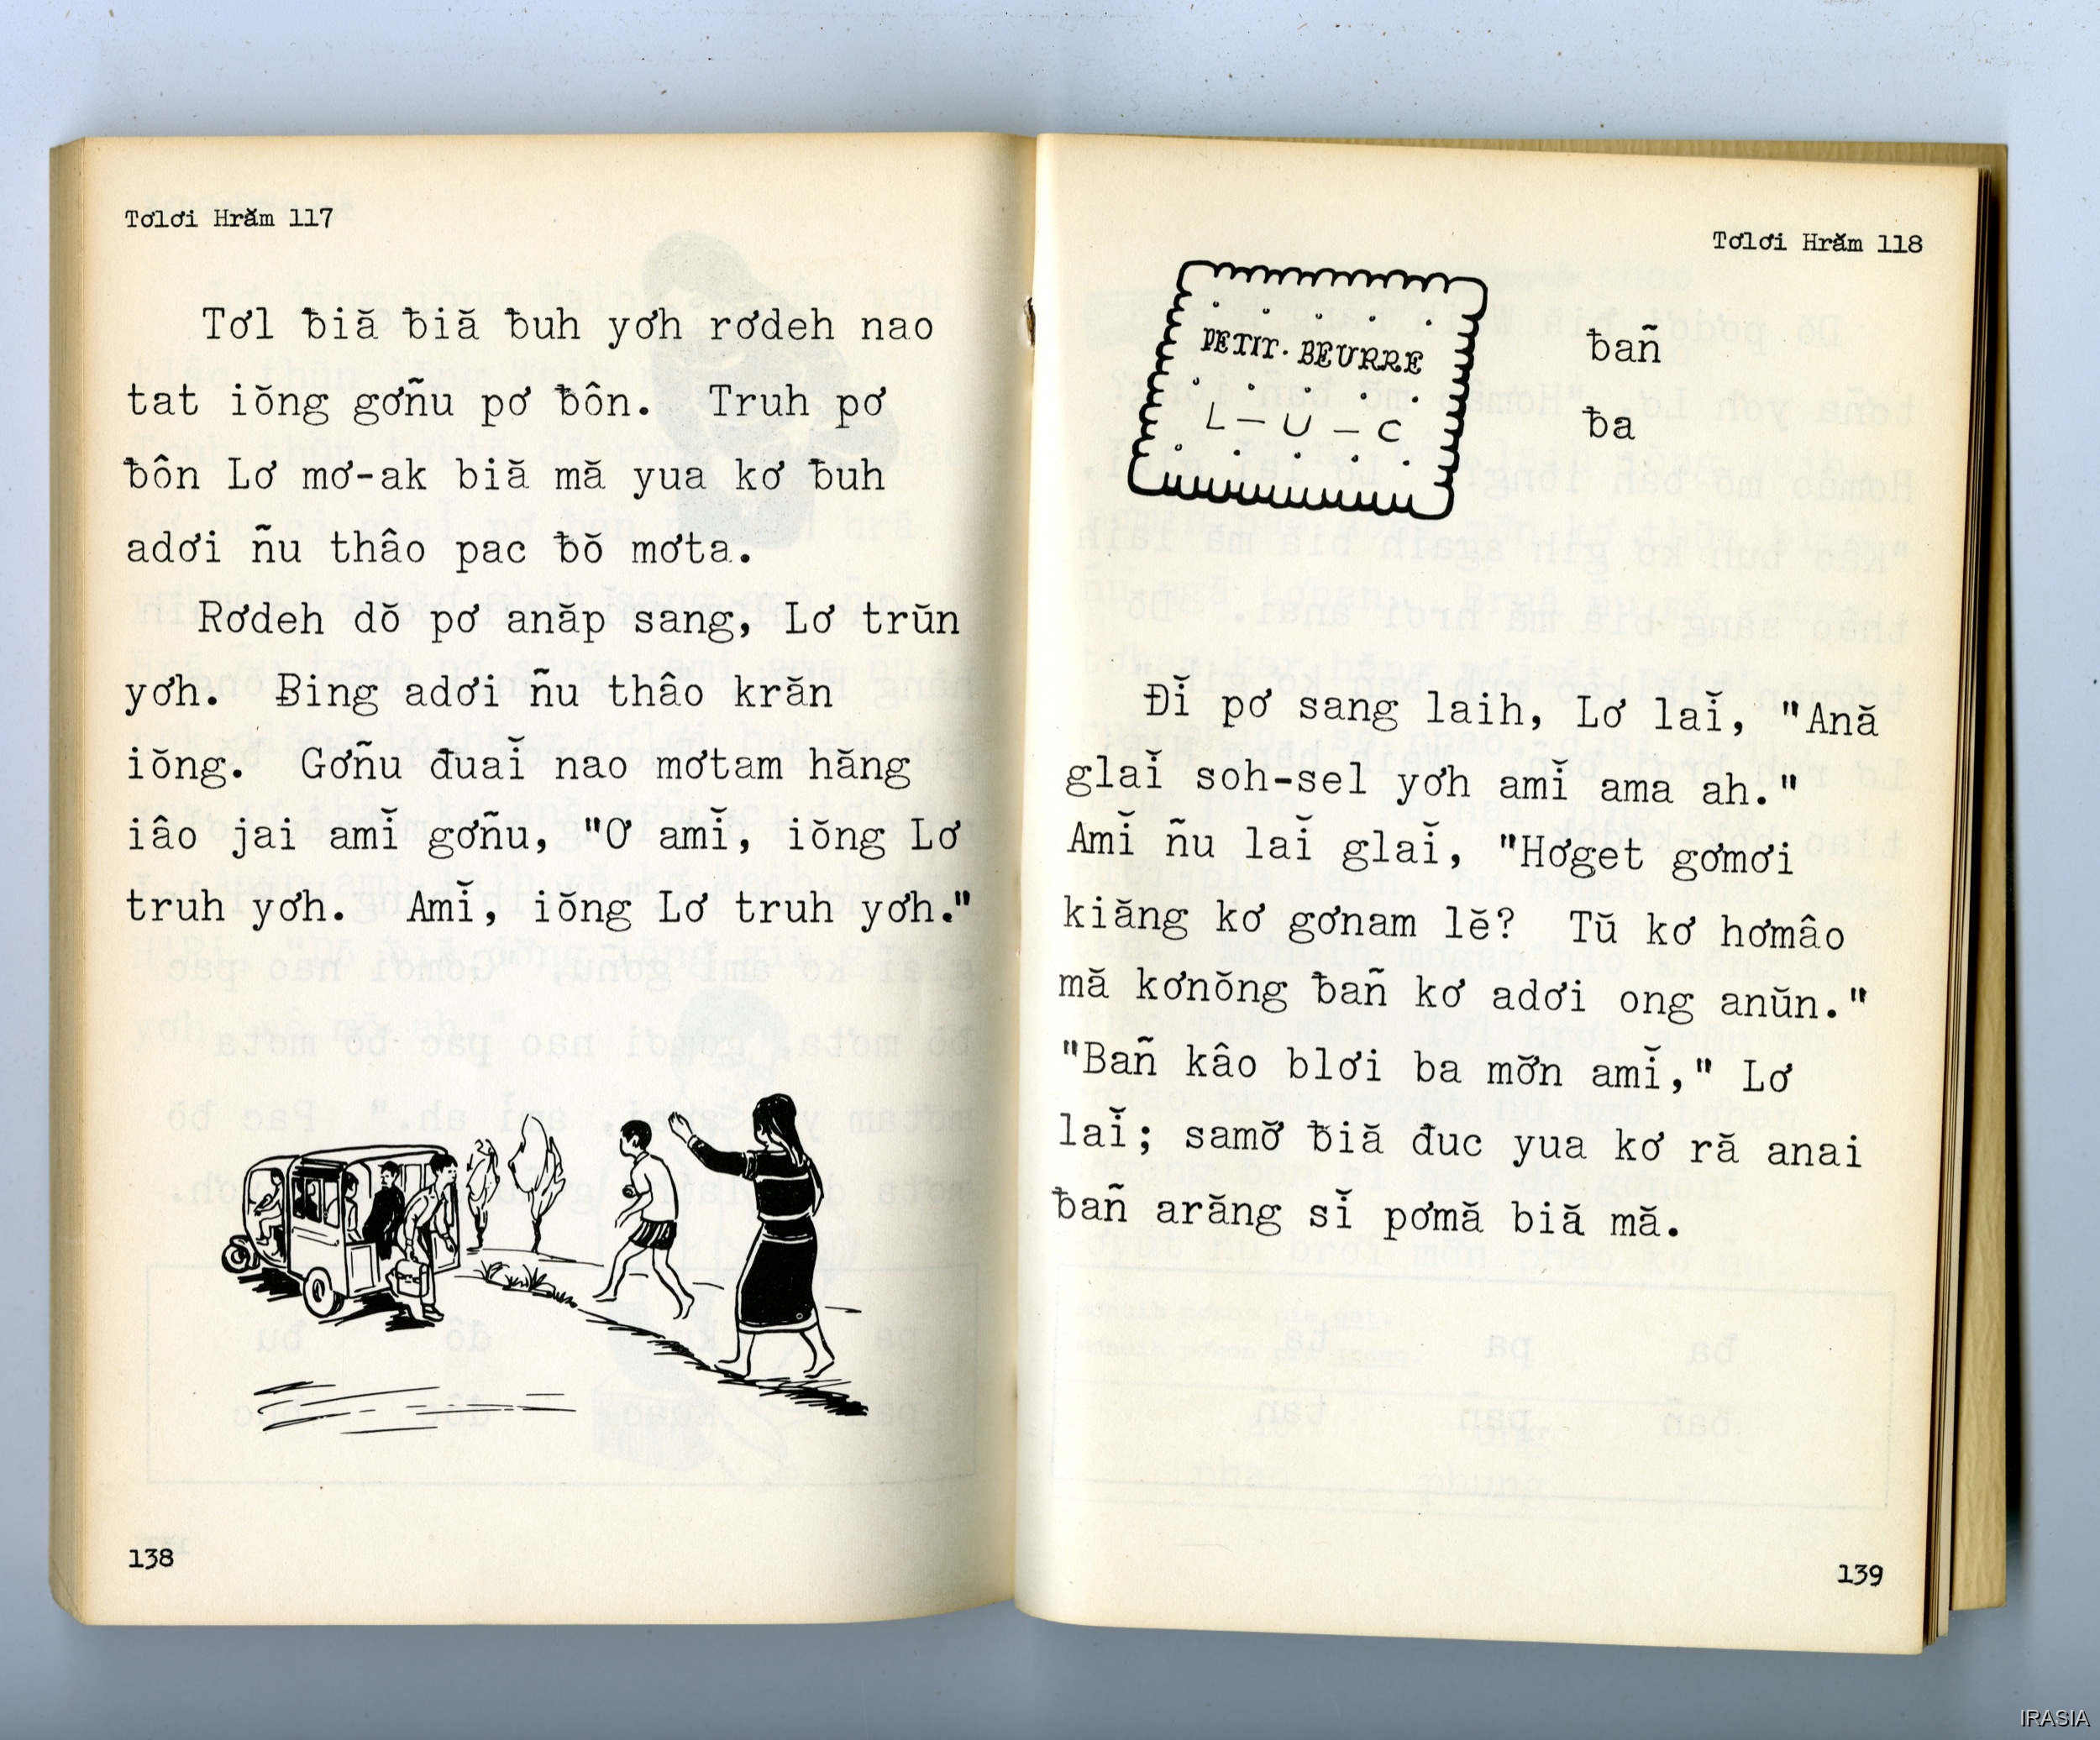 Tơlơi Hrăm 117
Tơl ƀiă ƀiă ƀuh yơh rơdeh nao
tat iŏng gơñu pơ ƀôn. Truh pơ
ƀôn Lơ mơ-ak biă mă yua kơ ƀuh
adơi ñu thâo pac ƀŏ mơta.
Rơdeh dŏ pơ anăp sang, Lơ trŭn
yơh. Ƀing adơi ñu thâo krăn
iŏng. Gơñu đuaĭ nao mơtam hăng
iâo jai amĭ gơñu, "Ơ amĭ, iŏng Lơ
truh yơh. Amĭ, iŏng Lơ truh yơh."
138
Tơlơi Hrăm 118
PETIT-BEURRE
L-U-C
ƀañ
ƀa
Đĭ pơ sang laih, Lơ laĭ, "Ană
glaĭ soh-sel yơh amĭ ama ah."
Amĭ ñu laĭ glaĭ, "Hơget gơmơi
kiăng kơ gơnam lĕ? Tŭ kơ hơmâo
mă kơnŏng ƀañ kơ adơi ong anŭn."
"Bañ kâo blơi ba mơ̆n amĭ," Lơ
laĭ; samơ̆ ƀiă đuc yua kơ ră anai
ƀañ arăng sĭ pơmă biă mă.
139
IRASIA